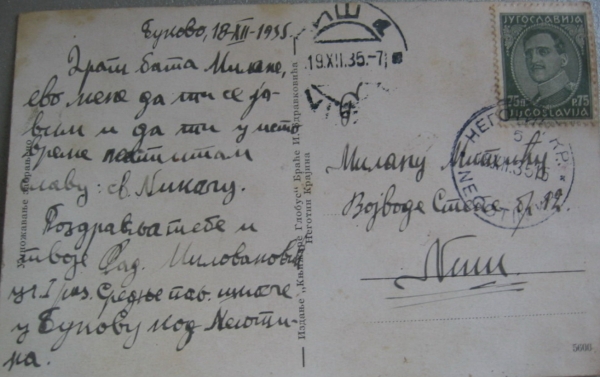 Буково, 18-XII-1935.
Драги бата Милане,
ево мене да ти се ја-
вим и да ти у исто
време честитам
славу: св. Николу.
Поздравља тебе и
твоје Рад. Миловановић
уч. I раз. Средње пољ. школе
у Букову код Неготи-
на.
Умножавање забрањено
Издање „Књижаре Глобус“ Браће И. Здравковића
Неготин Крајина
НИШ 2
19.XII.35.-7
ЈУГОСЛАВИЈА
75п Р.75
JUGOSLAVIJA
НЕГОТИН КР.
XII.35
NEGOTIN
Милану
Војводе бр. 12.
Ниш
5608